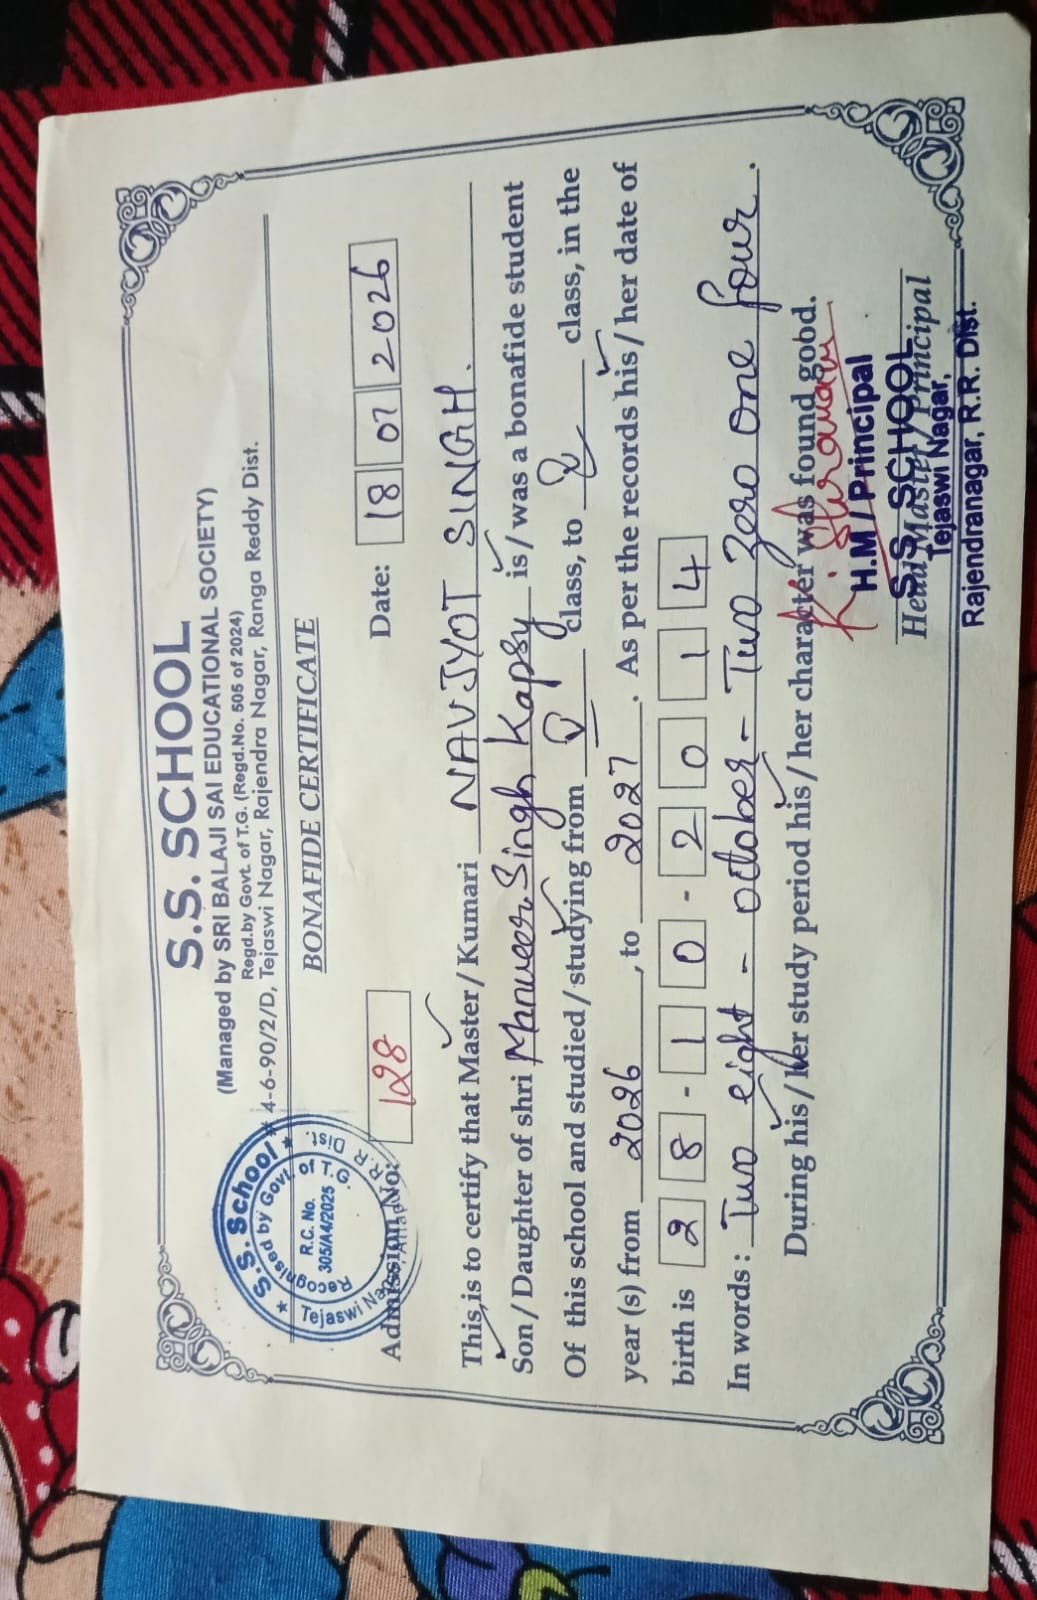 S.S. SCHOOL
(Managed by SRI BALAJI SAI EDUCATIONAL SOCIETY)
Regd.by Govt. of T.G. (Regd.No. 505 of 2024)
4-6-90/2/D, Tejaswi Nagar, Rajendra Nagar, Ranga Reddy Dist.
S.S. School
Recognised by Govt. of T.G.
R.C. No.
305/A4/2025
Tejaswi Nagar, Attapur, R.R. Dist.
BONAFIDE CERTIFICATE
Admission No: 128 Date: 18 07 2026
This is to certify that Master / Kumari NAVJYOT SINGH.
Son / Daughter of shri Singh Kapsy is / was a bonafide student
Of this school and studied / studying from V class, to class, in the
year (s) from 2026, to 2027. As per the records his / her date of
birth is 28-10-2014
In words : Two eight - october - Two zero one four.
During his / her study period his / her character was found gobd.
H.M / Principal
S.S. SCHOOL
Head Master / Principal
Tejaswi Nagar,
Rajendranagar, R.R. Dist.